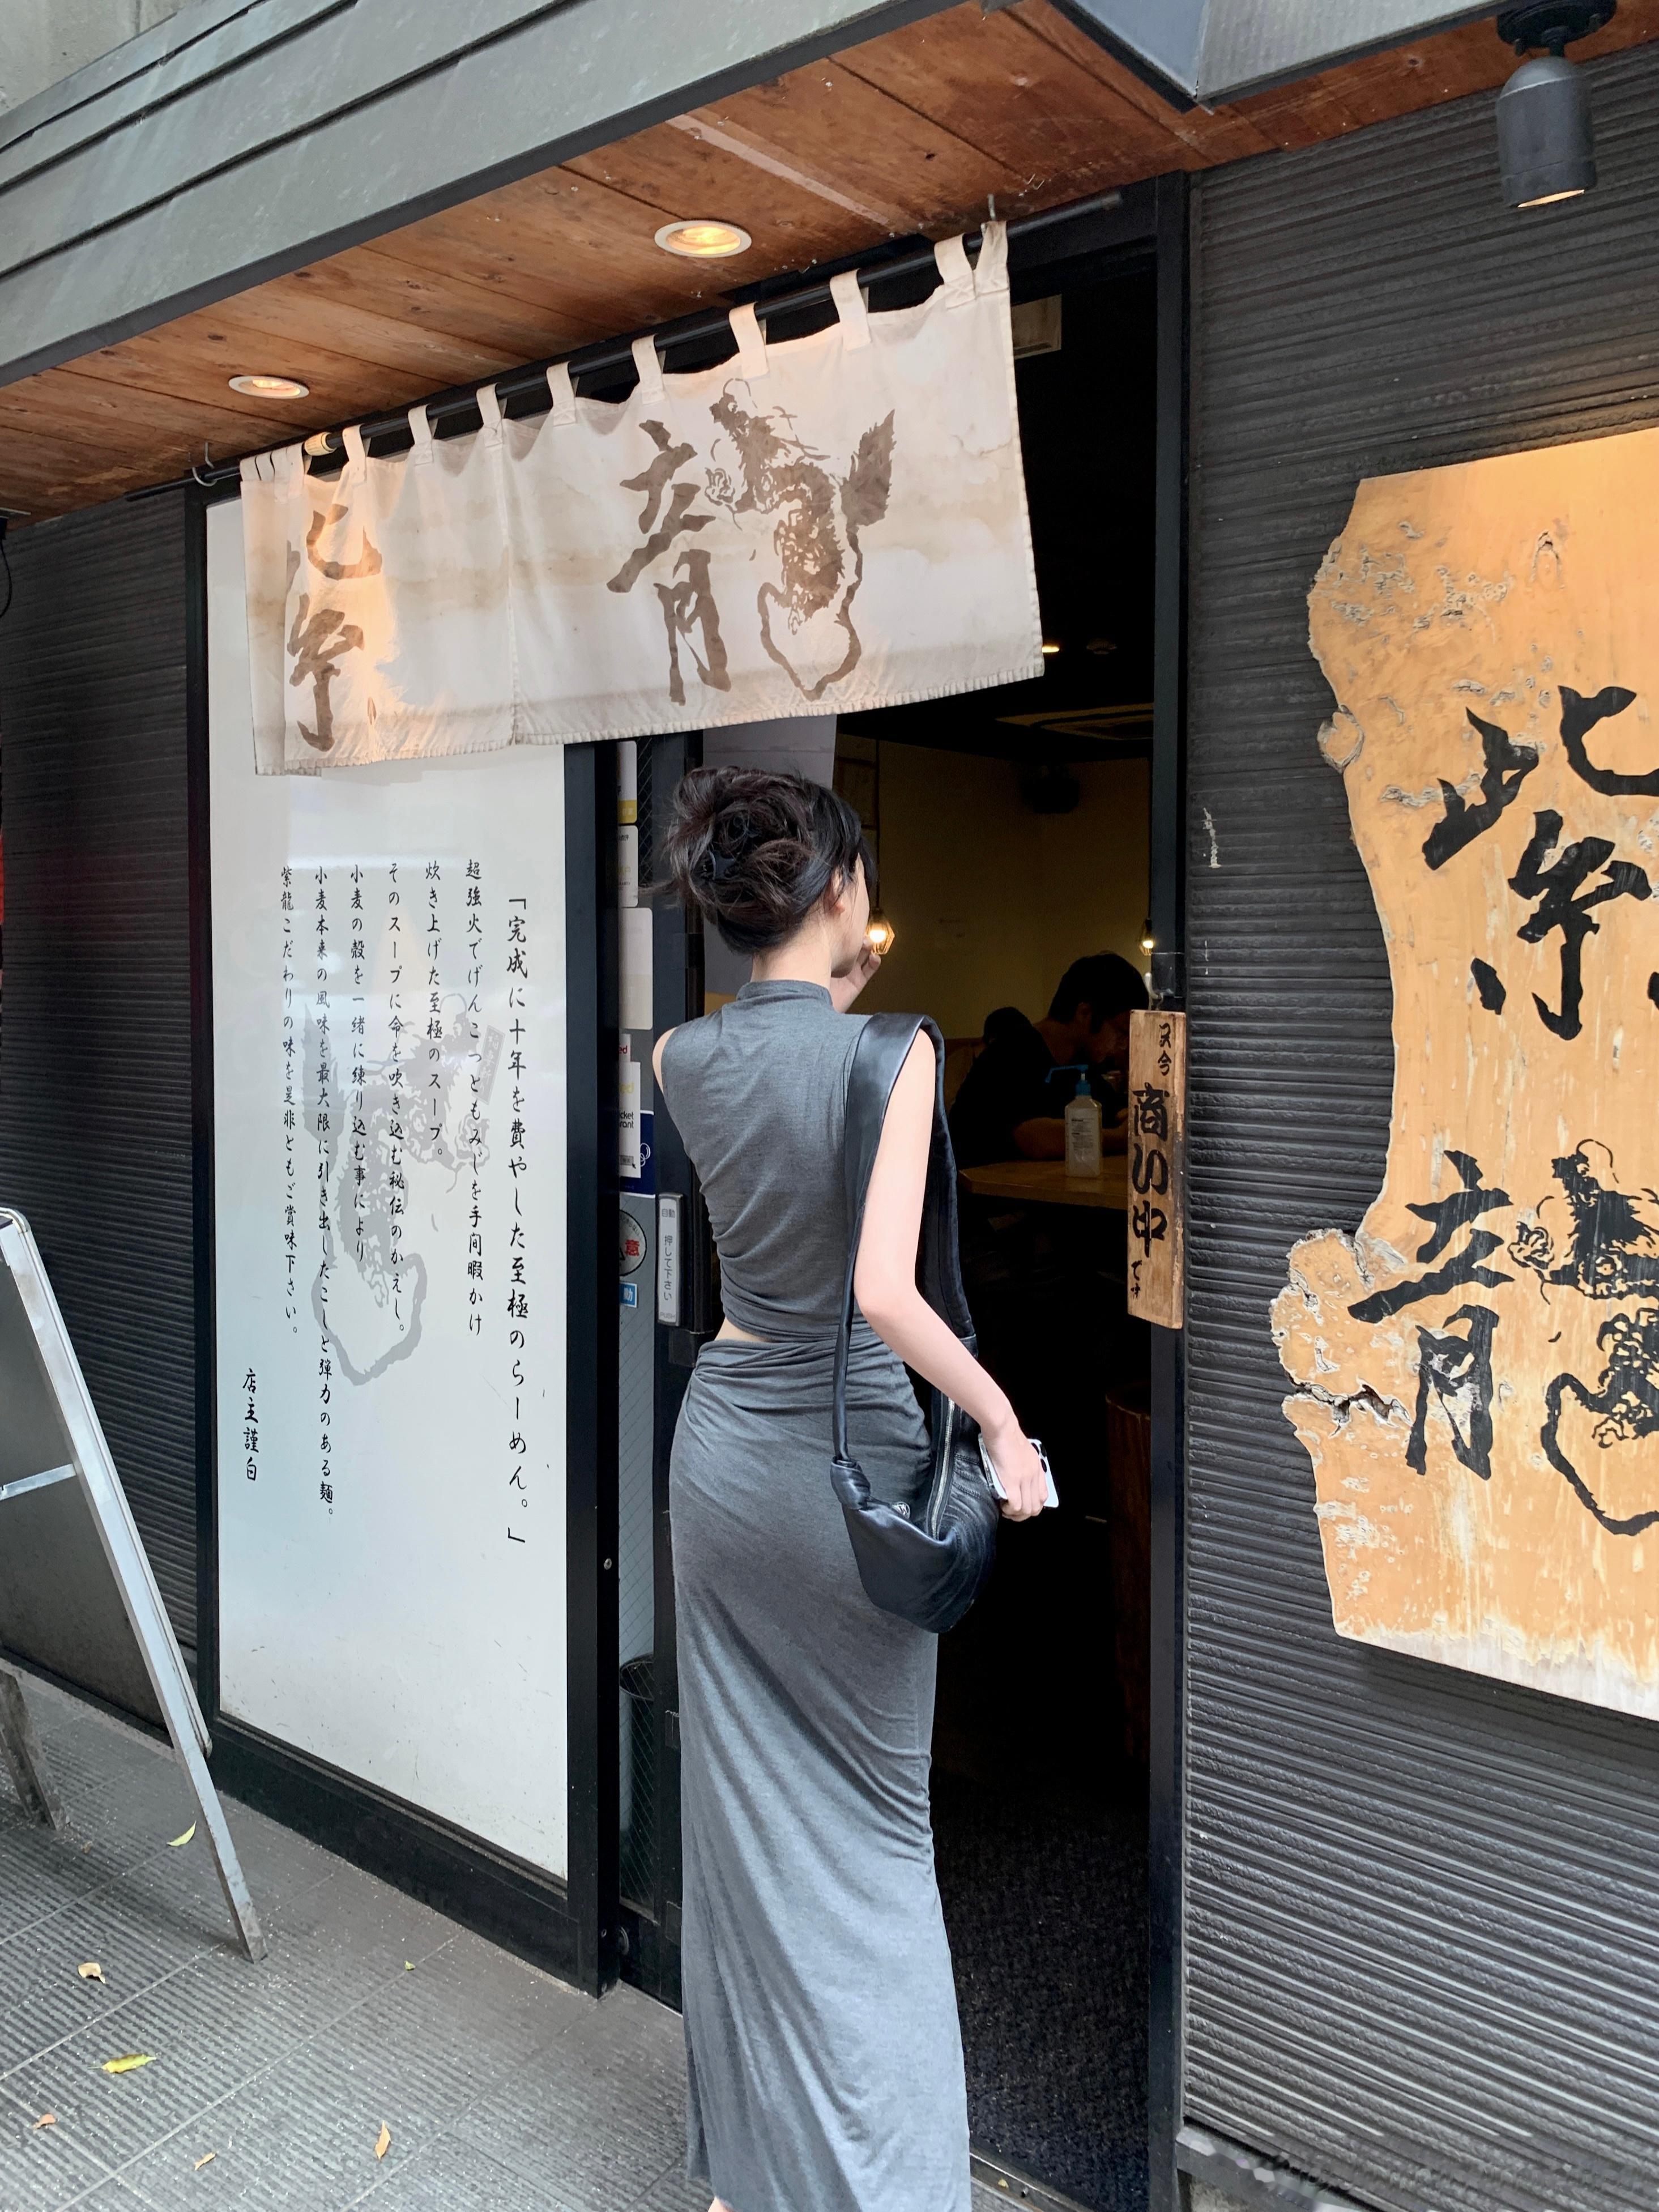 紫龍
「完成に十年を費やした至極のらーめん。」
超強火でげんこつともみじを手間暇かけ
炊き上げた至極のスープ。
そのスープに命を吹き込む秘伝のかえし。
小麦の殻を一緒に練り込む事により
小麦本来の風味を最大限に引き出したこしと弾力のある麺。
紫龍こだわりの味を是非ともご賞味下さい。
店主謹白
自動
押して下さい
只今
商い中
です
紫龍